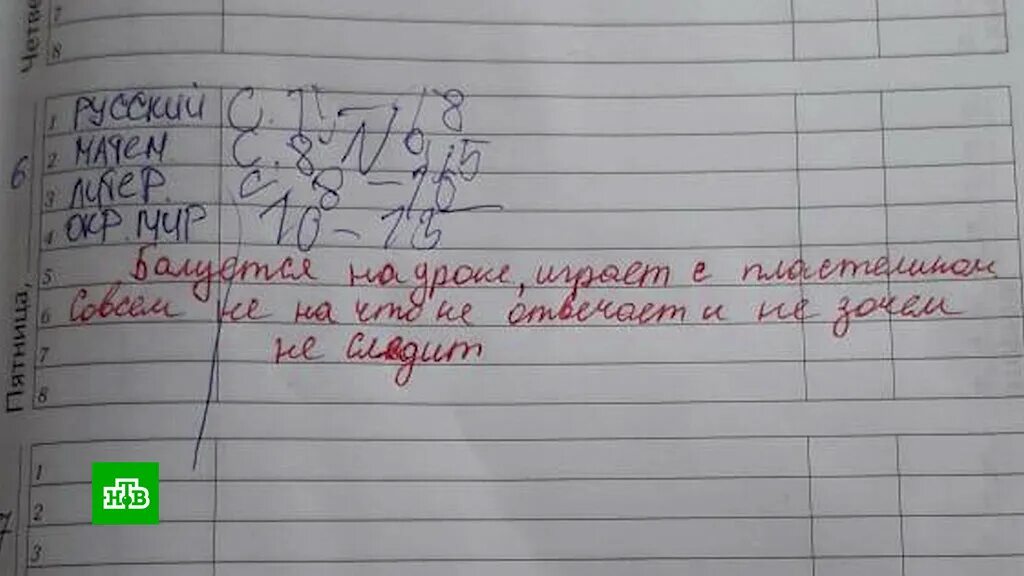 Четве
7
8
6
Пятница,
1 РУССКИЙ С. 11, - 18
2 МАТЕМ С. 8 - N
3 ЛИТЕР. С. 8 -
4 ОКР. МИР 10 - 13
5 Балуется на уроке, играет с пластелином
6 Совсем не на что не отвечает и не зочем
7 не следит
8
7
1
2
3
НТВ